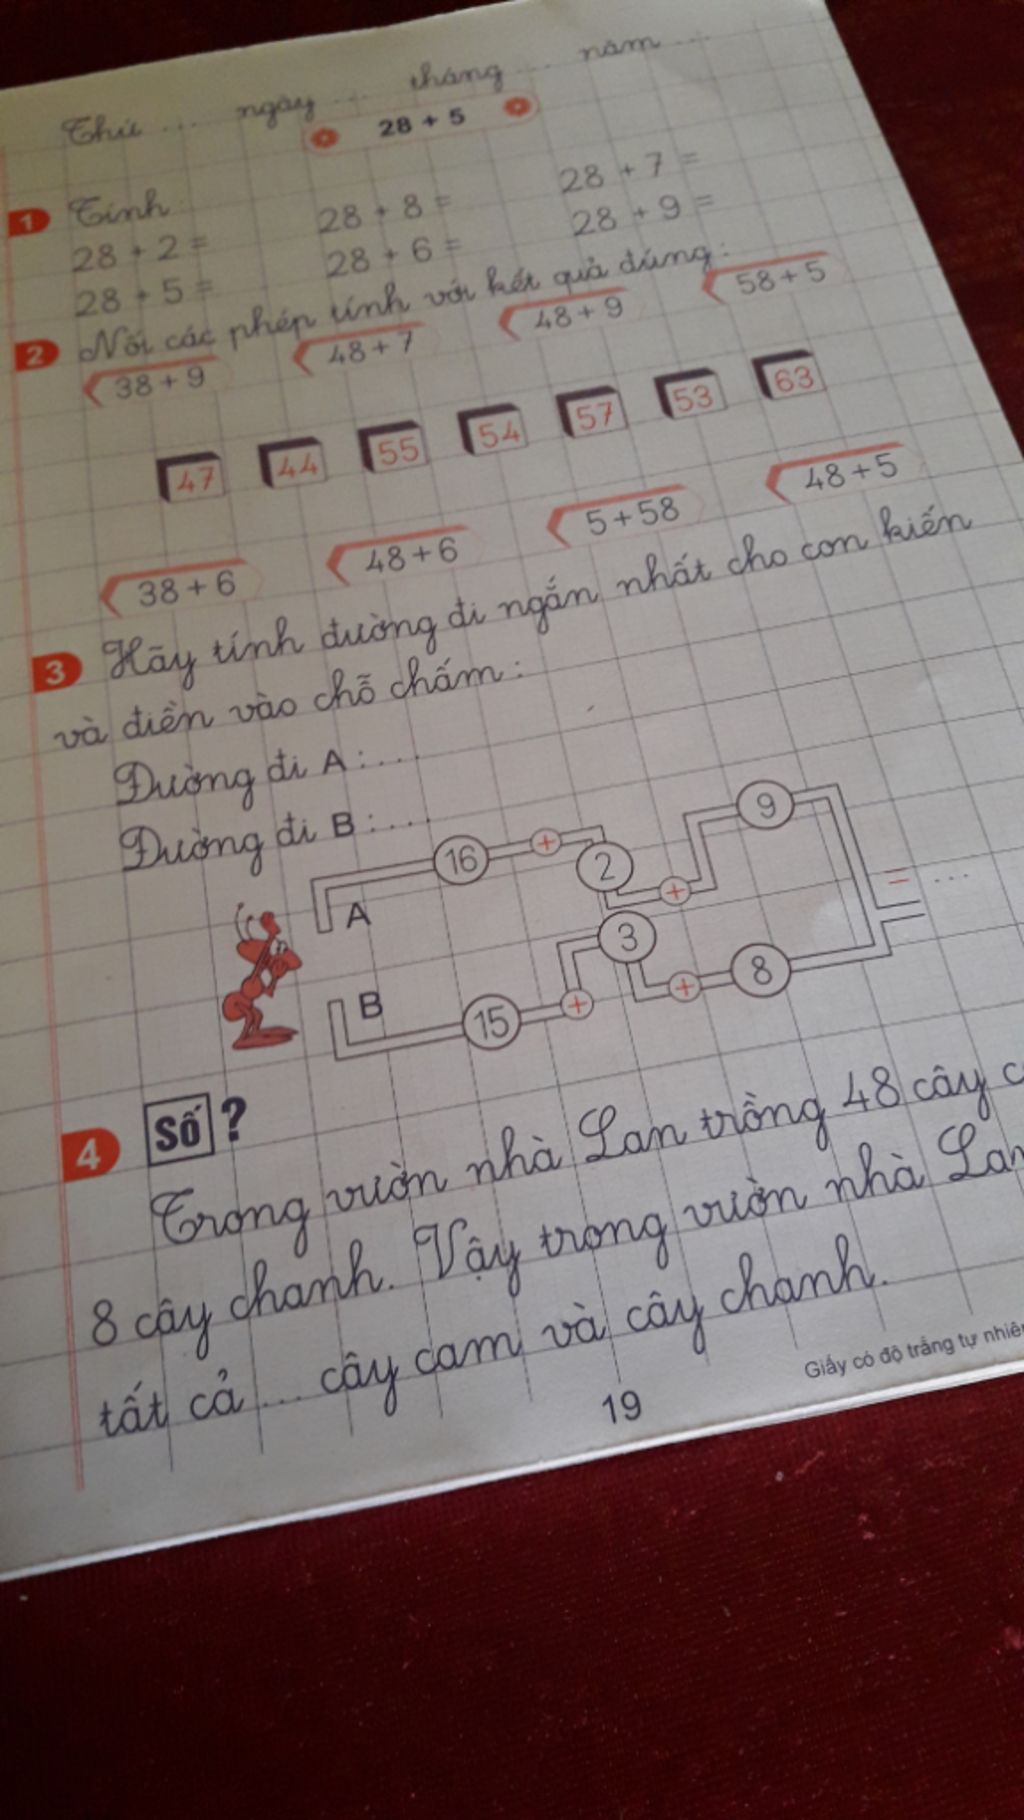 Thứ ... ngày ... tháng ... năm ...
28 + 5
1 Tính
28 + 2 = 28 + 8 = 28 + 7 =
28 + 5 = 28 + 6 = 28 + 9 =
2 Nối các phép tính với kết quả đúng:
38 + 9 48 + 7 48 + 9 58 + 5
47 44 55 54 57 53 63
38 + 6 48 + 6 5 + 58 48 + 5
3 Hãy tính đường đi ngắn nhất cho con kiến
và điền vào chỗ chấm:
Đường đi A: ....
Đường đi B: ....
A 16 + 2 + 9
= ...
B 15 + 3 + 8
4 Số ?
Trong vườn nhà Lan trồng 48 cây c
8 cây chanh. Vậy trong vườn nhà Lan
tất cả ... cây cam và cây chanh.
Giấy có độ trắng tự nhiên
19